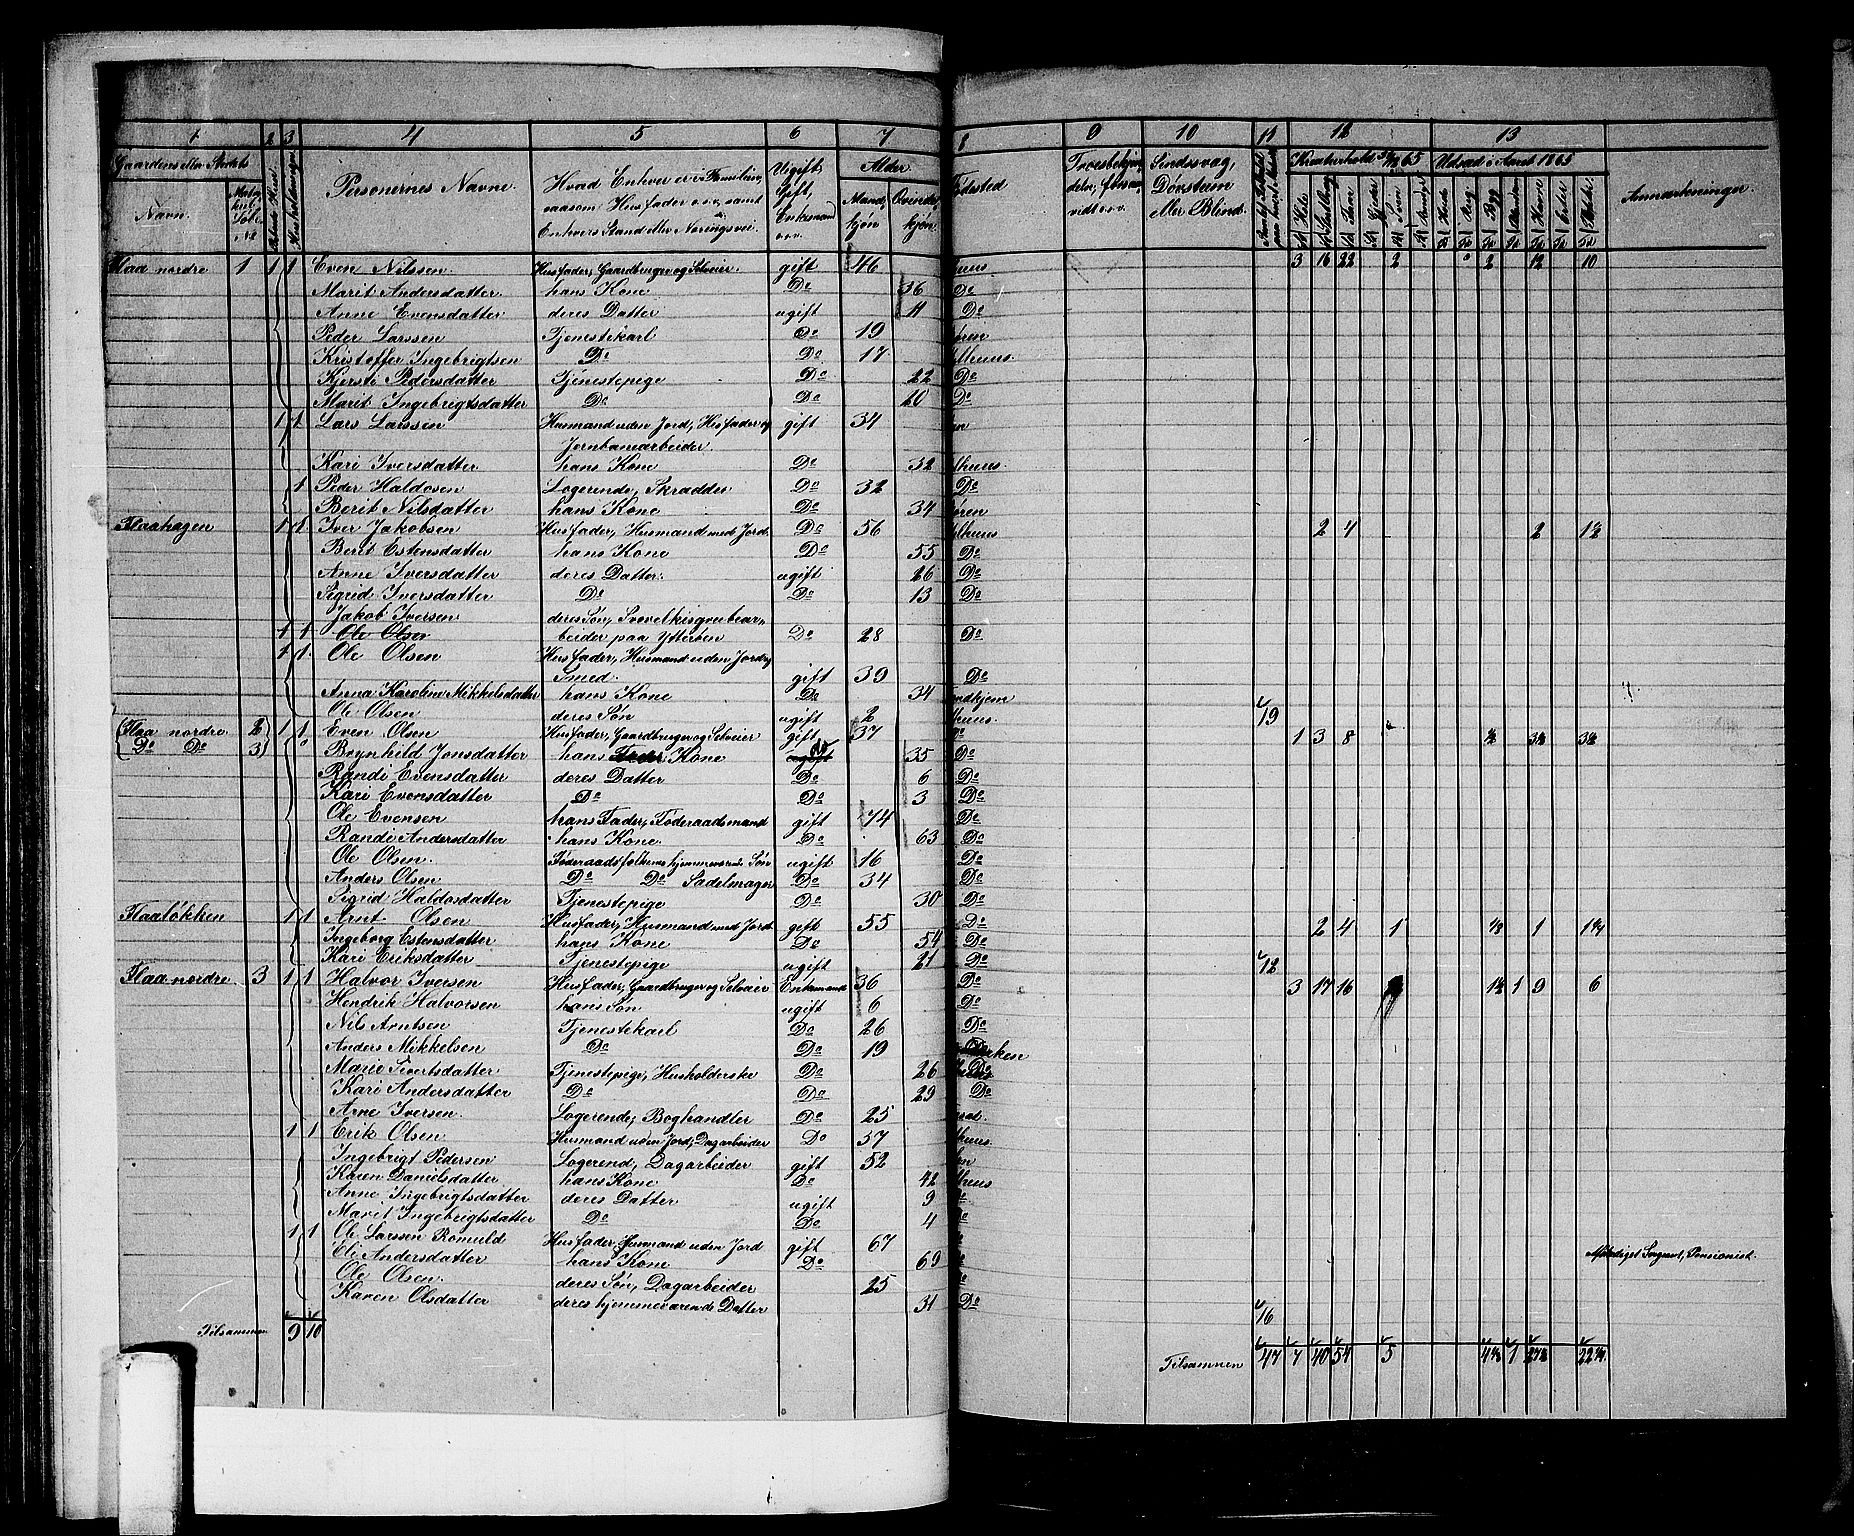 1 2 3 4 5 6 7 8 9 10 11 12 13
Gaardens eller Stedets Navn. Personernes Navne. Hvad Enhver er i Familien, saasom Husfader o.s.v. samt Enhvers Stand eller Næringsvei. Ugift, Gift, Enkemand o.s.v. Alder Mandkjøn Qvindekjøn Sindssvag, Døvstum eller Blind. Kreaturhold 31/12 65 Udsæd i Aaret 1865 Anmærkninger.
Flaa nordre 1 1 1 Even Nilssen Husfader, Gaardbruger og Selveier. gift 46 3 16 22 2 2 12 10
Marit Andersdatter hans Kone Do 36 Do
Anne Evensdatter deres Datter ugift 11 Do
Peder Larssen Tjenestekarl Do 19
Kristoffer Ingebrigtsen Do Do 17
Kjersti Pedersdatter Tjenestepige Do 22 Do
Marit Ingebrigtsdatter Do Do 20 Do
1 1 Lars Larssen Husmand uden Jord, Husfader og gift 34
Jernbanearbeider
Kari Iversdatter hans Kone Do 32
1 Peder Haldosen Logerende, Skrædder Do 32 Do
Berit Nilsdatter hans Kone Do 34
Flaahagen 1 1 Iver Jakobsen Husfader, Husmand med Jord. Do 56 2 4 2 1½
Berit Estensdatter hans Kone Do 55 Do
Anne Iversdatter deres Datter. ugift 26 Do
Sigrid Iversdatter Do Do 13 Do
Jakob Iversen deres Søn, Svovelkisgrubear-
1 1 Ole Olsen beider paa Ytterøen Do 28 Do
1 1 Ole Olsen Husfader, Husmand uden Jord,
Smed. gift 39 Do
Anna Karolina Mikkelsdatter hans Kone Do 34
Ole Olsen deres Søn ugift 2 19
Flaa nordre 2 1 1 Even Olsen Husfader, Gaardbruger og Selveier gift 37 Do 1 3 8 ½ 3½ 3½
Do Do 3 Brynhild Jonsdatter hans Kone Do 35 Do
Randi Evensdatter deres Datter Do 6 Do
Kari Evensdatter Do Do 3 Do
Ole Evensen hans Fader, Føderaadsmand gift 74 Do
Randi Andersdatter hans Kone. Do 63 Do
Ole Olsen. Føderaadsfolkenes hjemmeværende Søn ugift 16 Do
Anders Olsen Do Do Sadelmager Do 34 Do
Sigrid Haldosdatter Tjenestepige Do 30 Do
Flaaløkken 1 1 Arnt Olsen Husfader, Husmand med Jord gift 55 Do 2 4 1 1
Ingeborg Estensdatter hans Kone Do 54 Do
Kari Eriksdatter Tjenestepige ugift 21 Do 12
Flaa nordre 3 1 1 Halvor Iversen Husfader, Gaardbruger og Selveier Enkemand 36 Do 3 17 16 1½ 1 9 6
Hendrik Halvorsen hans Søn ugift 6 Do
Nils Arntsen Tjenestekarl Do 26 Do
Anders Mikkelsen Do Do 19
Marie Sivertsdatter Tjenestepige, Husholderske Do 26 Do
Kari Andersdatter Do Do 29 Do
Arne Iversen. Logerende, Boghandler Do 25
1 1 Erik Olsen Husmand uden Jord, Dagarbeider Do 57
Ingebrigt Pedersen Logerend, Dagarbeider gift 52
Karen Danielsdatter hans Kone Do 42
Anne Ingebrigtsdatter deres Datter ugift 9 Do
Marit Ingebrigtsdatter Do Do 4 Do
1 1 Ole Larssen Romuld Husfader, Husmand uden Jord gift 67
Eli Andersdatter hans Kone Do 69 Afskediget Sergeant, Pensionist.
Ole Olsen. deres Søn, Dagarbeider 25
Karen Olsdatter deres hjemmeværende Datter 31 Do 16
Tilsammen 9 10 Tilsammen 47 7 40 54 5 1